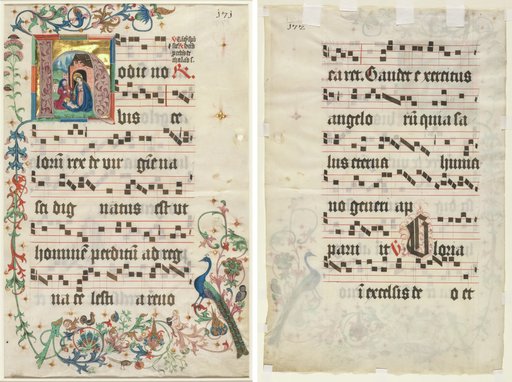 Hodie no
bis ce
lorū rex de vir gīe na
sci dig natus est ut
hominē perditū ad reg
na ce lesti a revo
172
ca ret. Gaudet exercitus
angelo rū quia sa
lus eterna humā
no generi ap
paru it V Gloria
ī excelsis de o et